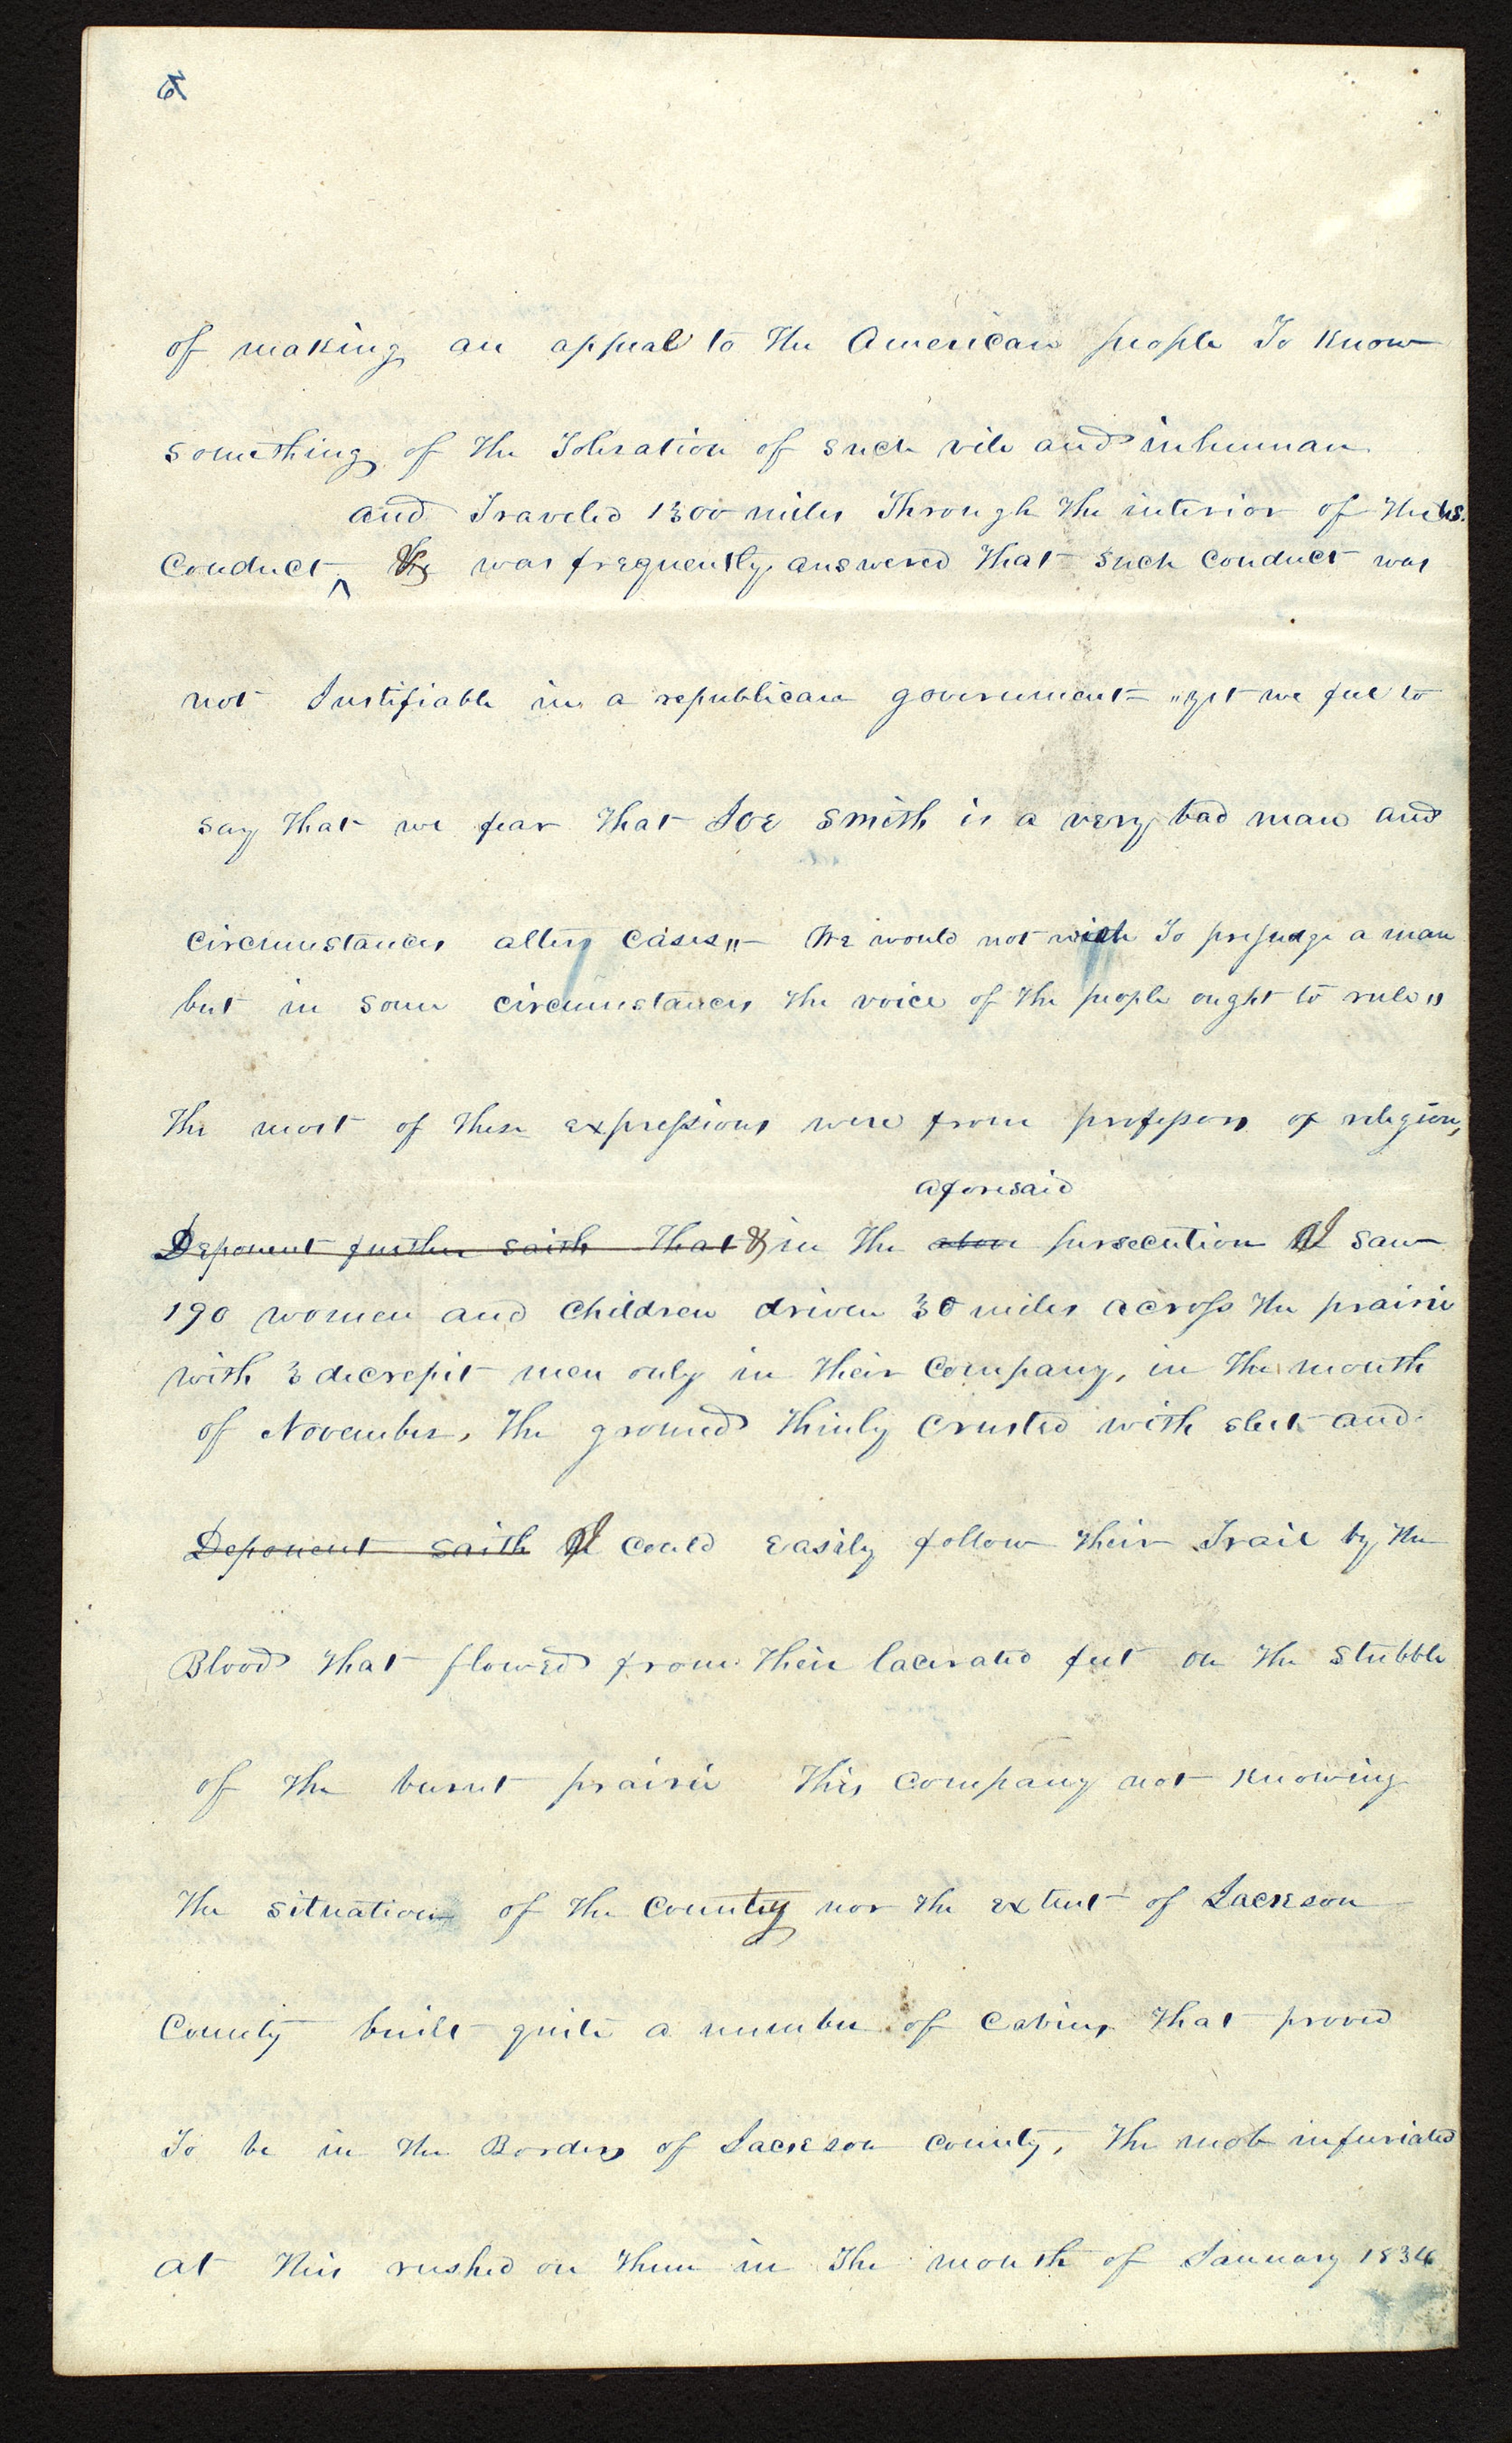 of making an appeal to the American people To Know
something of the Toleration of such vile and inhuman
and Traveled 1300 miles Through the interior of the US.
Conduct ^ was frequently answered that such conduct was
not Justifiable in a republican government= „yet we feel to
say that we fear that Joe Smith is a very bad man and
circumstances alters cases„— We would not wish To prejudge a man
but in some circumstances the voice of the people ought to rule„
The most of these expressions were from professors of religion,
aforesaid
Deponent further saith that & in the above persecution I saw
190 women and children driven 30 miles across the prairie
with 3 decrepit men only in their company, in the month
of November, the ground thinly crusted with sleet and
Deponent saith I could easily follow their Trail by the
Blood that flowed from their lacerated feet on the stubble
of the burnt prairie This company not knowing
the situation of the County nor the extent of Jackson
County built quite a number of cabins that proved
To be in the Borders of Jackson County, The mob infuriated
at this rushed on them in the month of January 1834